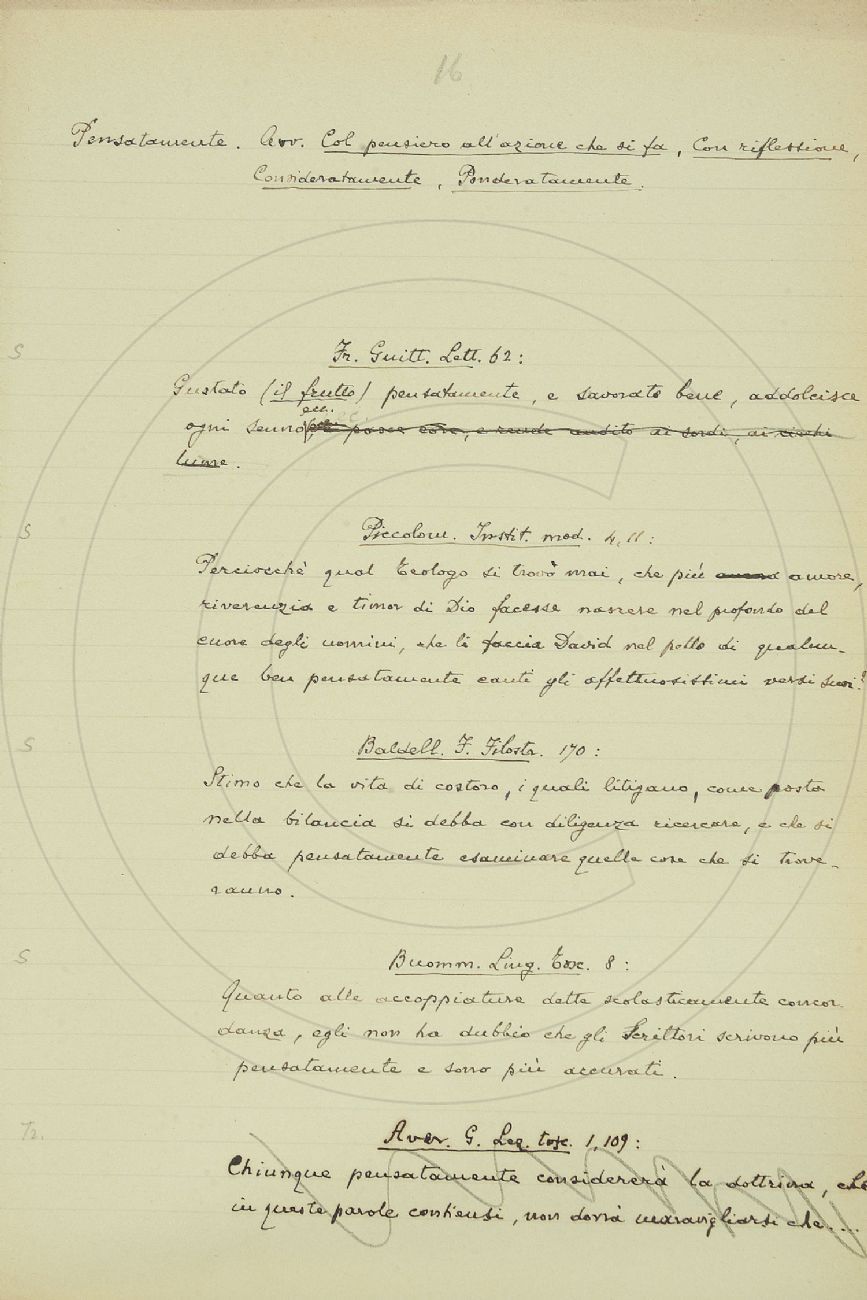 16
Pensatamente. Avv. Col pensiero all'azione che si fa, Con riflessione,
Consideratamente, Ponderatamente.
S
Fr. Guitt. Lett. 62:
Gustato (il frutto) pensatamente, e savorato bene, addolcisce
ecc.
ogni senno, e pasce core, e rende audito ai sordi, ai ciechi
lume.
S
Piccolom. Instit. mod. 4, 11:
Perciocchè qual Teologo si trovò mai, che più amore,
riverenzia e timor di Dio facesse nascere nel profondo del
cuore degli uomini, che li faccia David nel petto di qualun-
que ben pensatamente canti gli affettuosissimi versi suoi?
S
Baldell. F. Filostr. 170:
Stimo che la vita di costoro, i quali litigano, come posta
nella bilancia si debba con diligenza ricercare, e che si
debba pensatamente esaminare quelle cose che si trove-
ranno.
S
Buomm. Ling. Tosc. 8:
Quanto alle accoppiature dette scolasticamente concor
danza, egli non ha dubbio che gli Scrittori scrivono più
pensatamente e sono più accurati.
Tr.
Aver. G. Lez. tosc. 1, 109:
Chiunque pensatamente considererà la dottrina, che
in queste parole contiensi, non dovrà maravigliarsi che....